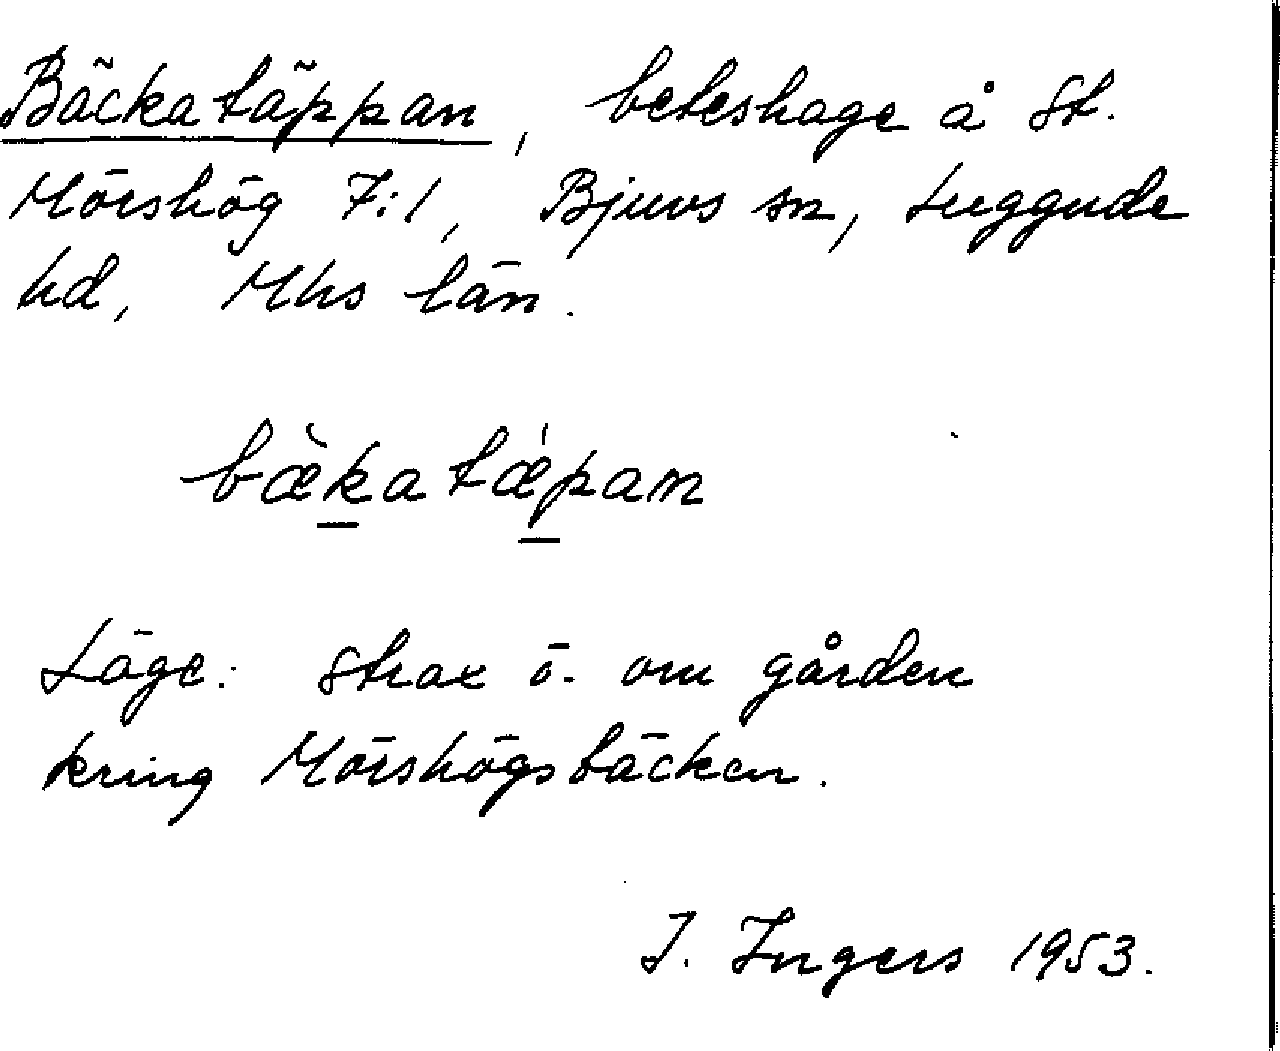 Bäckatäppan, beteshage å St.
Mörshög 7:1, Bjuvs sn, Luggude
hd, Mhs län.
bæ̀katǽpan
Läge: strax ö. om gården
kring Mörshögsbäcken.
I. Ingers 1953.